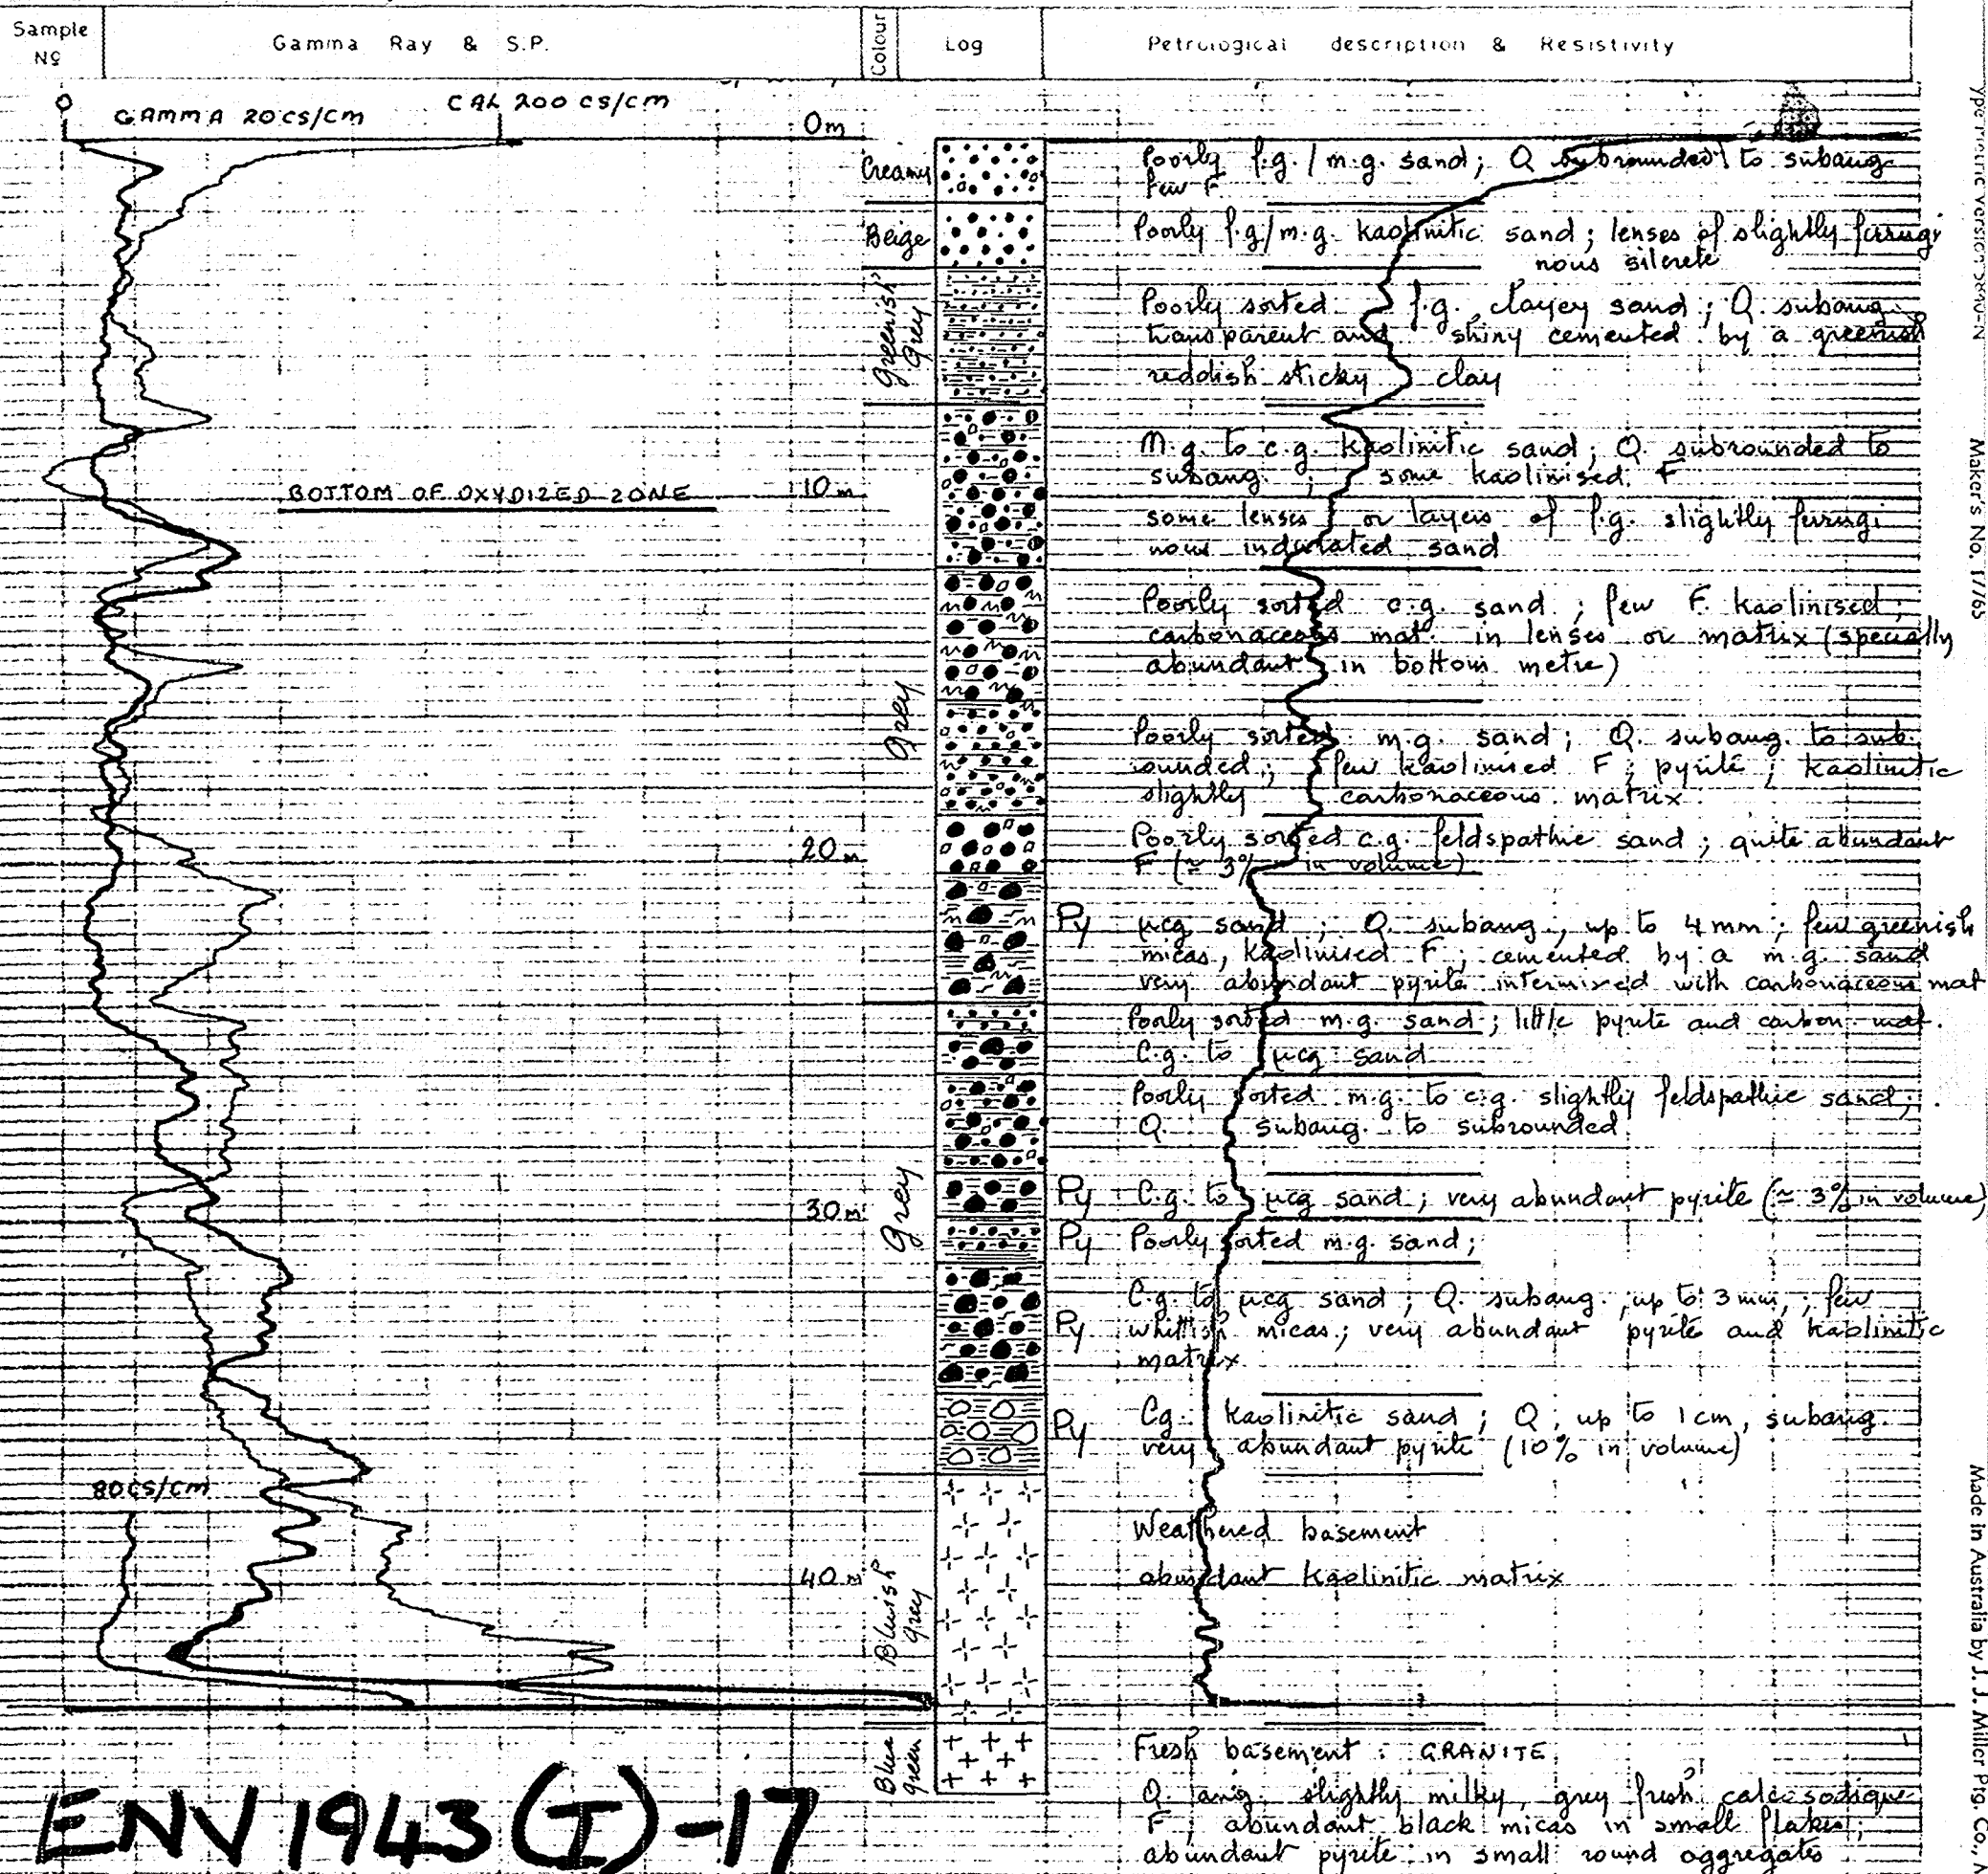 Sample
Nº
Gamma Ray & S.P.
Colour
Log
Petrological description & Resistivity
O
GAMMA 20 CS/CM
CAL 200 CS/CM
0m
Creamy
Poorly f.g. / m.g. sand; Q subrounded to subang
few F
Beige
Poorly f.g/m.g. kaolinitic sand; lenses of slightly ferrugi
nous silcrete
Greenish
Grey
Poorly sorted f.g. clayey sand; Q. subang.
transparent and shiny cemented by a greenish
reddish sticky clay
M.g. to c.g. kaolinitic sand; Q. subrounded to
subang. ; some kaolinised F
BOTTOM OF OXYDIZED ZONE
10 m
some lenses or layers of f.g. slightly ferrugi
nous indurated sand
Poorly sorted c.g. sand; few F. kaolinised;
carbonaceous mat. in lenses or matrix (specially
abundant in bottom metre)
Grey
Poorly sorted m.g. sand; Q. subang. to sub
ounded; few kaolinised F; pyrite; kaolinitic
slightly carbonaceous matrix.
20 m
Poorly sorted c.g. feldspathic sand; quite abundant
F (≃ 3% in volume)
Py
µcg sand; Q. subang., up to 4 mm; few greenish
micas, kaolinised F; cemented by a m.g. sand
very abundant pyrite intermixed with carbonaceous mat
Poorly sorted m.g. sand; little pyrite and carbon. mat.
C.g. to µcg sand
Poorly sorted m.g. to c.g. slightly feldspathic sand;
Q. subang. to subrounded
Grey
30 m
Py
C.g. to µcg sand; very abundant pyrite (≃ 3% in volume)
Py
Poorly sorted m.g. sand;
Py
C.g. to µcg sand; Q. subang., up to 3 mm,; few
whitish micas; very abundant pyrite and kaolinitic
matrix
Py
Cg. kaolinitic sand; Q, up to 1 cm, subang.
very abundant pyrite (10% in volume)
80 CS/CM
Weathered basement
40 m
abundant kaolinitic matrix
Bluish
Grey
Blue
green
Fresh basement: GRANITE
Q. ang. slightly milky, grey fresh calcosodique
F, abundant black micas in small flakes;
abundant pyrite in small round aggregates
ENV 1943 (I)-17
Maker's No. 17765
Made in Australia by J.J. Miller Ptg. Co.,